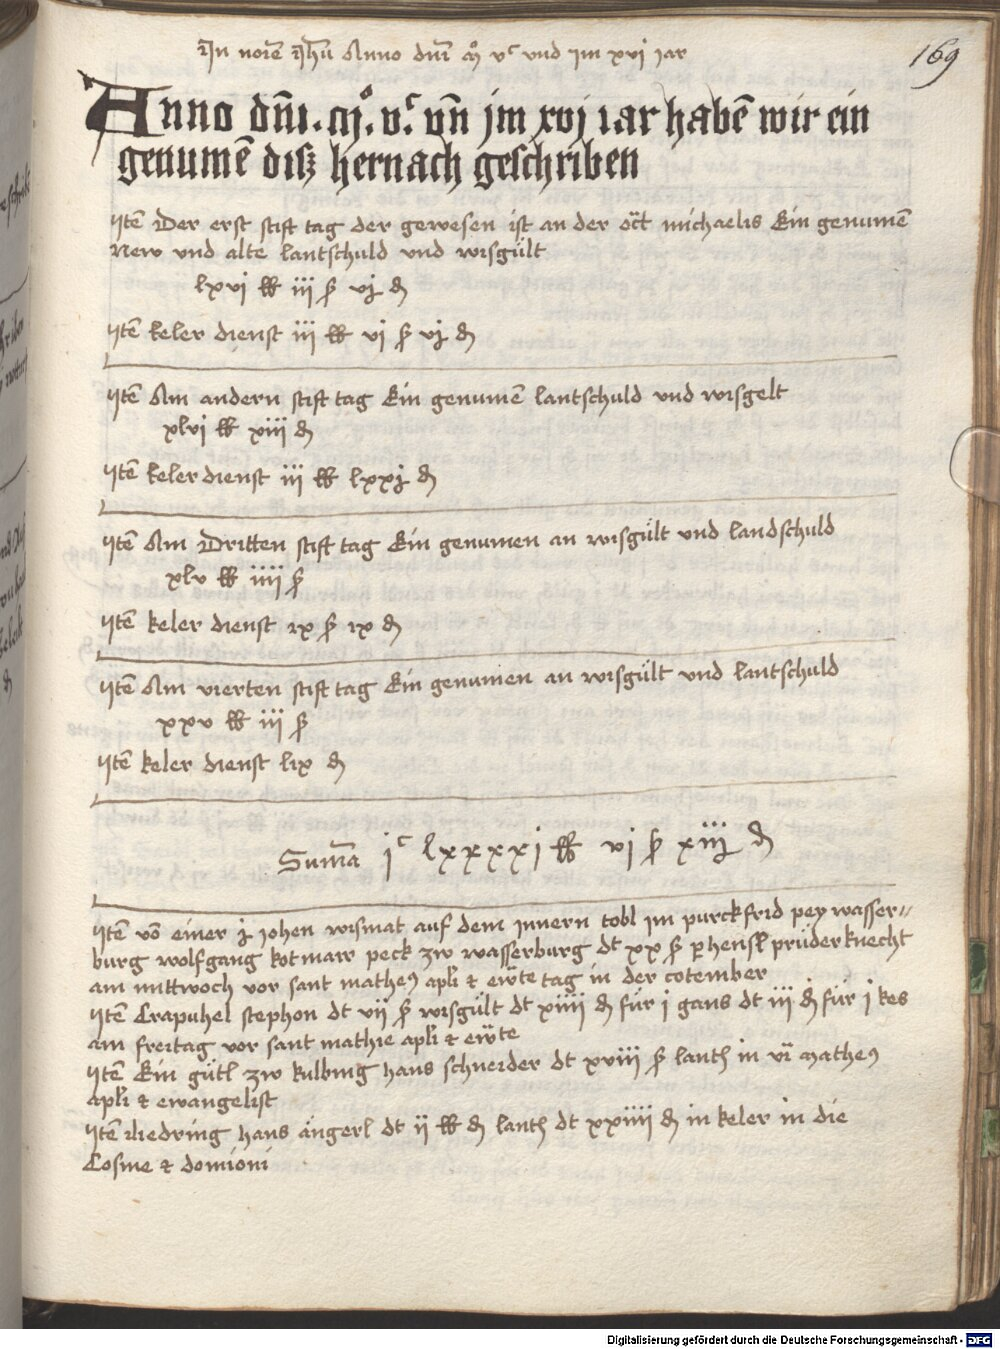 In noie Ihu Anno dni mº vᶜ vnd im xvi iar
169
Anno dm̄. mº. vᶜ. vn̄ jm xvj iar habē wir ein
genumē disz hernach geschriben
Itē Der erst stift tag der gewesen ist an der oct michaelis Ein genumē
New vnd alte lantschuld vnd wisgült
lxvi ℔ iii ß vij ₰
Itē keler dienst iii ℔ vi ß vij ₰
Itē Am andern stift tag Ein genumē lantschuld vnd wisgelt
xlvi ℔ xiii ₰
Itē keler dienst iii ℔ lxxj ₰
Itē Am Dritten stift tag Ein genumen an wisgült vnd landschuld
xlv ℔ iiii ß
Itē keler dienst ix ß ix ₰
Itē Am vierten stift tag Ein genumen an wisgült vnd lantschuld
xxv ℔ iii ß
Itē keler dienst lix ₰
Sum̄a jᶜ lxxxxj ℔ vj ß xiij ₰
Itē vō einer j iohen wismat auf dem innern tobl im purckfrid pey wasser〃
burg wolfgang kotmair peck zw wasserburg dt xx ß p hensl prüderknecht
am mittwoch vor sant matheꝰ apli & ewte tag in der cotember
Itē Crapuhel stephon dt vii ß wisgült dt xiiii ₰ für j gans dt iii ₰ für j kes
am freitag vor sant mathie apli & ewte
Itē Ein gütl zw kulbing hans schneider dt xviii ß lanth in vi matheꝰ
apli & ewangelist
Itē Niedring hans ängerl dt ij ℔ ₰ lanth dt xxiiii ₰ in keler in die
Cosme & domioni
Digitalisierung gefördert durch die Deutsche Forschungsgemeinschaft - DFG